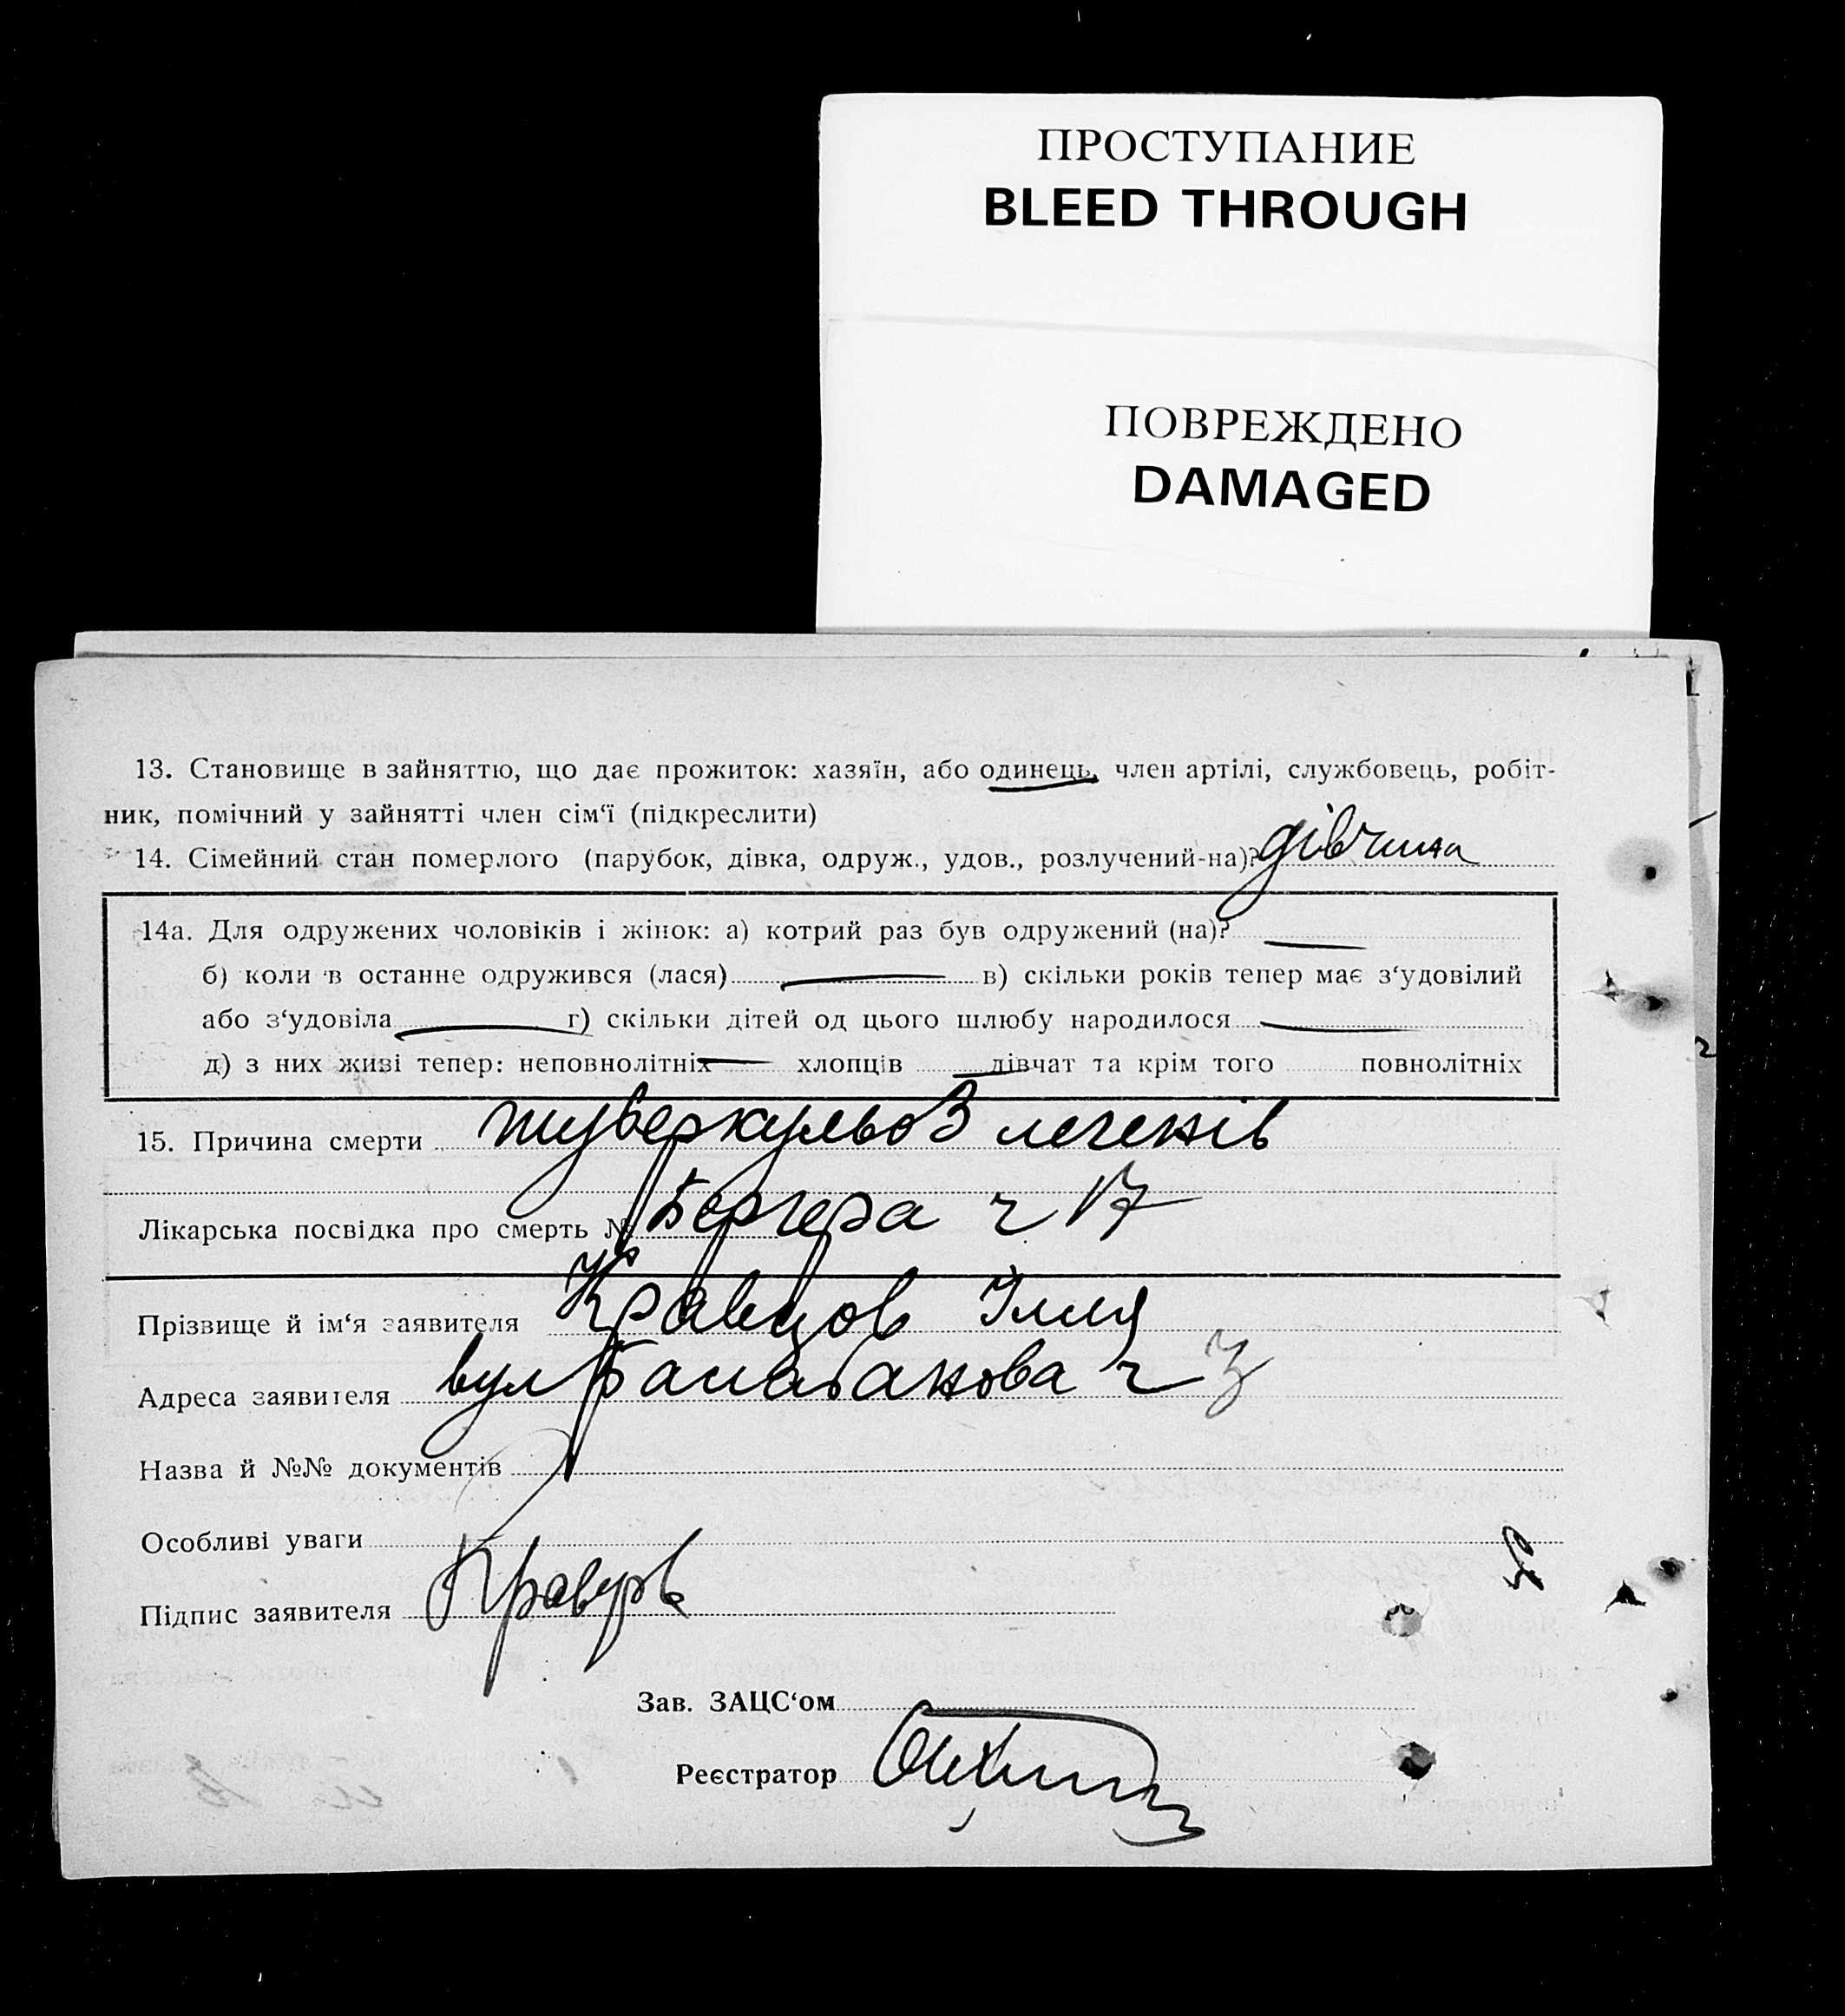 ПРОСТУПАНИЕ
BLEED THROUGH
ПОВРЕЖДЕНО
DAMAGED
13. Становище в зайняттю, що дає прожиток: хазяїн, або одинець, член артілі, службовець, робіт-
ник, помічний у зайнятті член сім‘ї (підкреслити)
14. Сімейний стан померлого (парубок, дівка, одруж., удов., розлучений-на)? дівчина
14а. Для одружених чоловіків і жінок: а) котрий раз був одружений (на)?
б) коли в останнє одружився (лася) в) скільки років тепер має з‘удовілий
або з‘удовіла г) скільки дітей од цього шлюбу народилося
д) з них живі тепер: неповнолітніх хлопців дівчат та крім того повнолітніх
15. Причина смерти туберкульоз легенів
Лікарська посвідка про смерть № Бергера ч 17
Прізвище й ім‘я заявителя Кравцов Ілля
Адреса заявителя вул Балабанова ч 3
Назва й №№ документів
Особливі уваги
Підпис заявителя Кравцов
Зав. ЗАЦС‘ом
Реєстратор